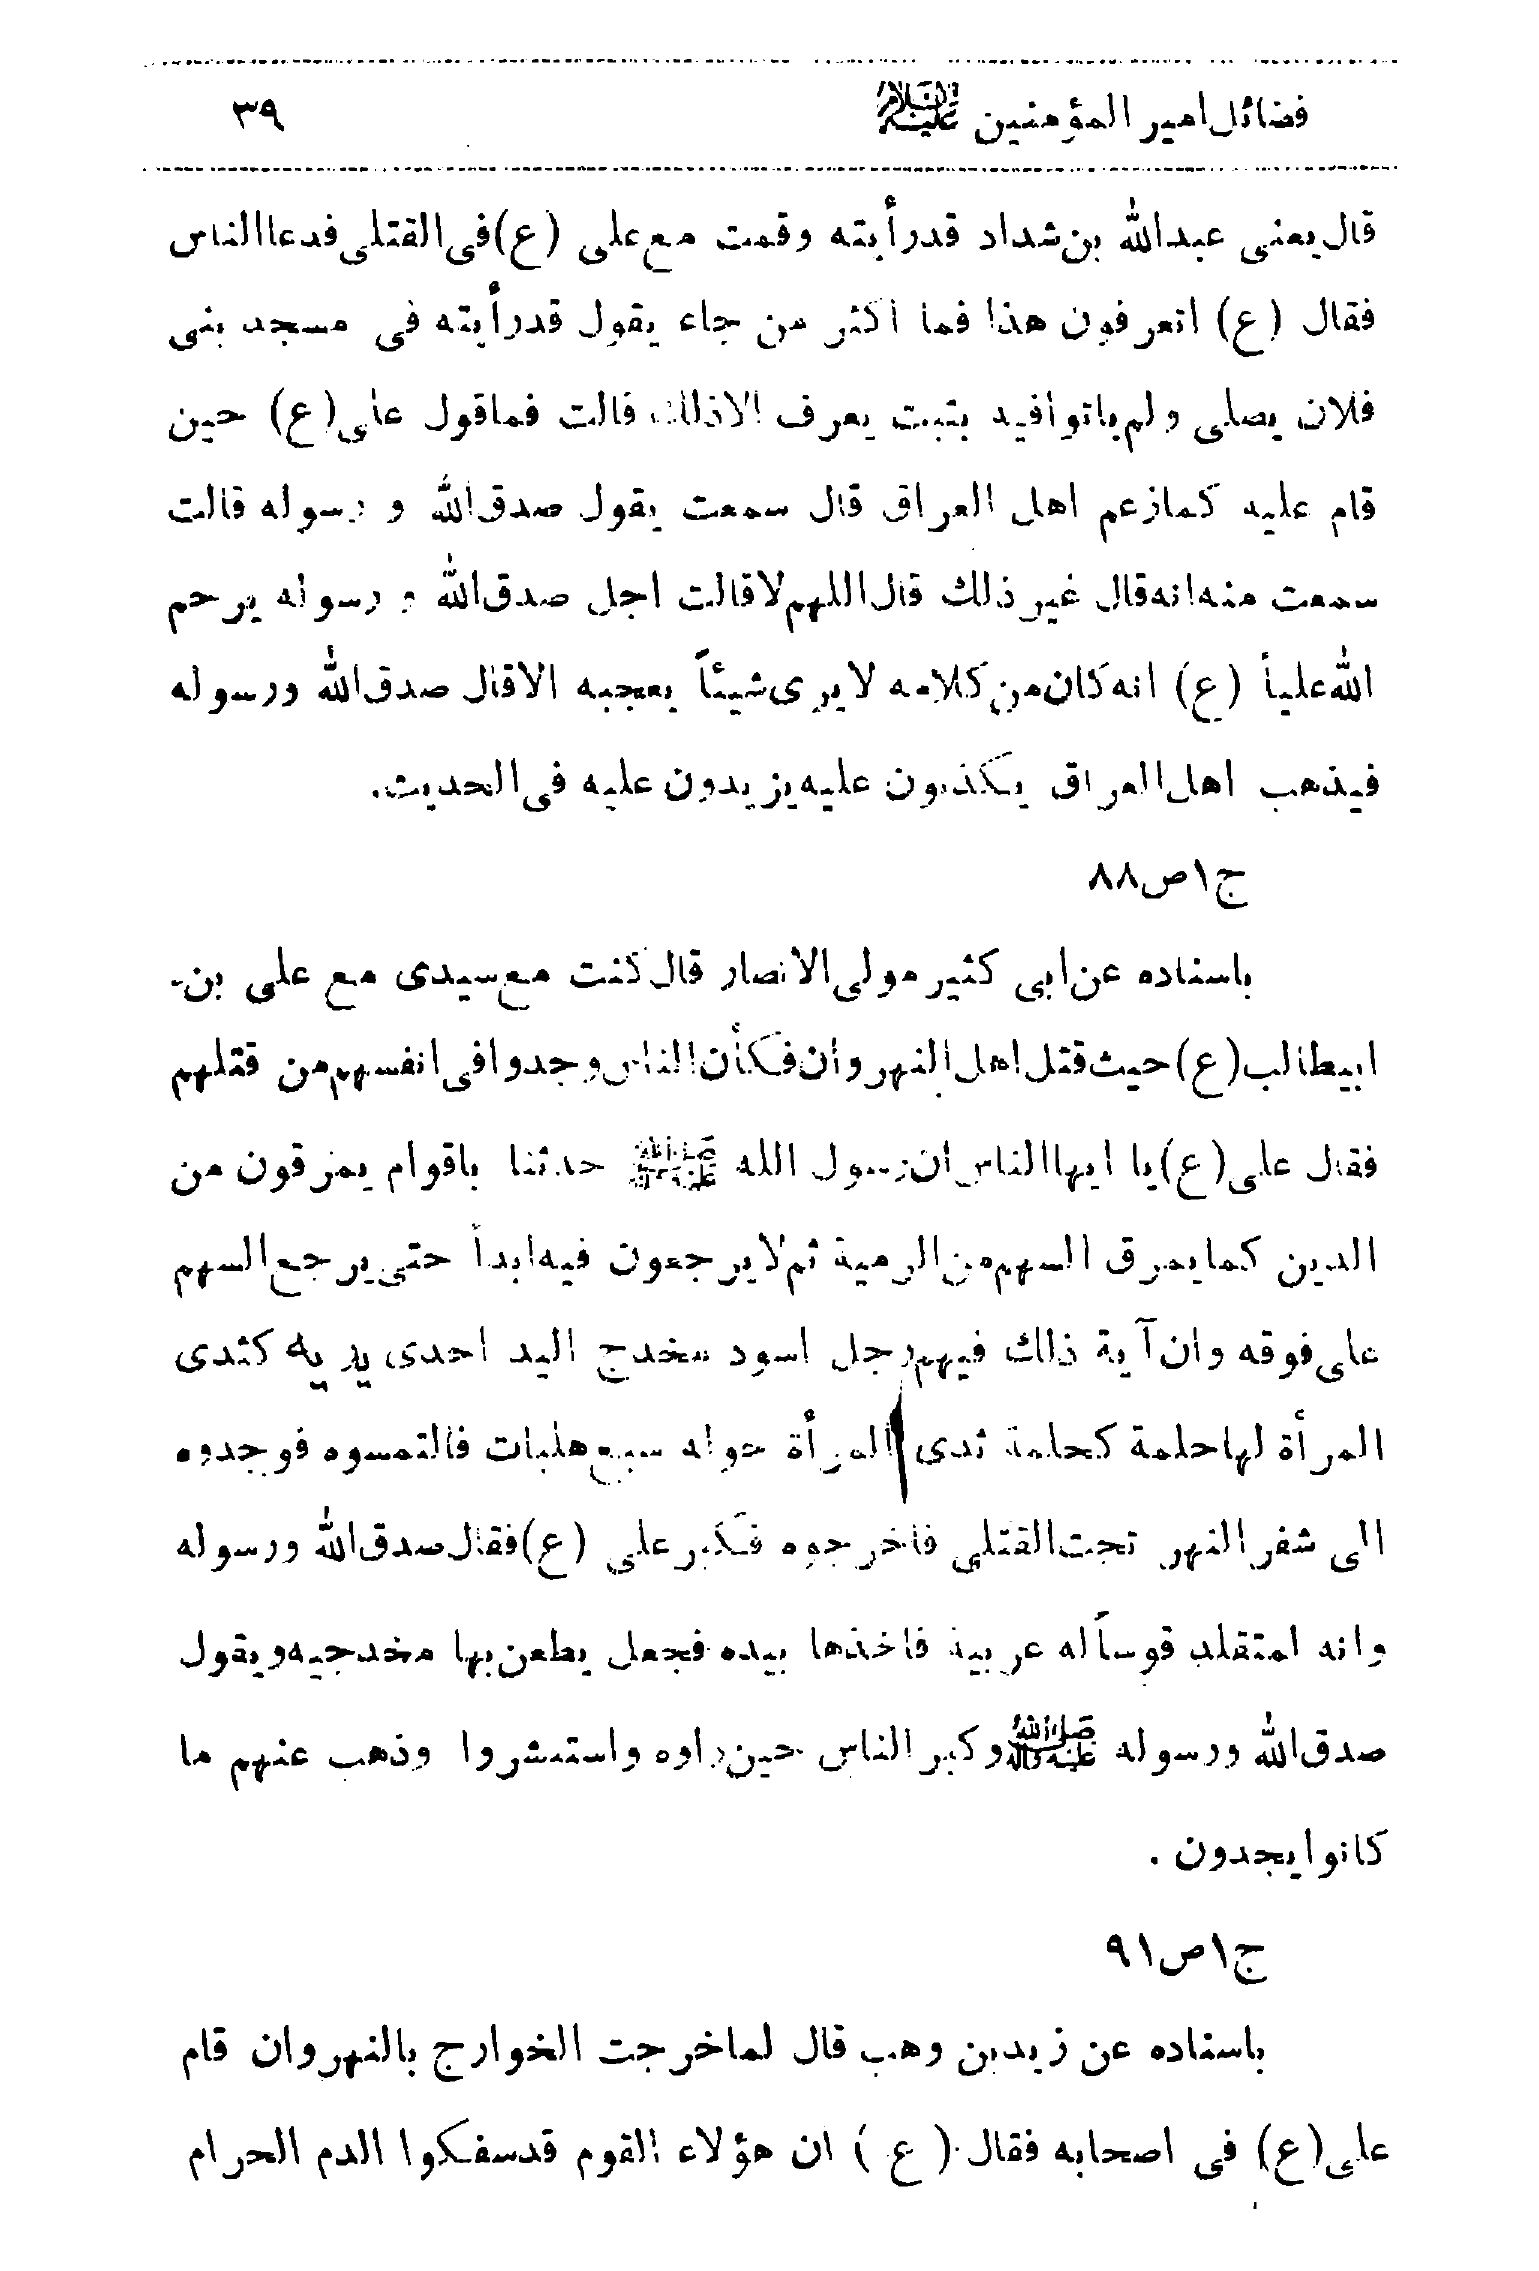 فضائل امير المؤمنين عليه السلام ٣٩
قال يعنى عبدالله بن شداد قدرأيته وقمت مع على (ع) فى القتلى فدعا الناس
فقال (ع) اتعرفون هذا فما اكثر من جاء يقول قدرأيته فى مسجد بنى
فلان يصلى ولم ياتوا فيه بثبت يعرف الا ذلك قالت فماقول على (ع) حين
قام عليه كمازعم اهل العراق قال سمعت يقول صدق الله و رسوله قالت
سمعت منه انه قال غير ذلك قال اللهم لا قالت اجل صدق الله و رسوله يرحم
الله علياً (ع) انه كان من كلامه لا يرى شيئاً يعجبه الاقال صدق الله ورسوله
فيذهب اهل العراق يكذبون عليه يزيدون عليه فى الحديث.
ج١ص٨٨
باسناده عن ابى كثير مولى الانصار قال كنت مع سيدى مع على بن-
ابيطالب (ع) حيث قتل اهل النهروان فكأن الناس وجدوا فى انفسهم من قتلهم
فقال على (ع) يا ايها الناس ان رسول الله صلى الله عليه وآله حدثنا باقوام يمرقون من
الدين كما يمرق السهم من الرمية ثم لا يرجعون فيه ابداً حتى يرجع السهم
على فوقه وان آية ذلك فيهم رجل اسود مخدج اليد احدى يديه كثدى
المرأة لها حلمة كحلمة ثدى المرأة حوله سبع هلبات فالتمسوه فوجدوه
الى شفر النهر تحت القتلى فاخرجوه فكبر على (ع) فقال صدق الله ورسوله
وانه لمتقلد قوساً له عربية فاخذها بيده فجعل يطعن بها مخدجيه ويقول
صدق الله ورسوله صلى الله عليه وآله وكبر الناس حين راوه واستبشروا وذهب عنهم ما
كانوا يجدون .
ج١ص٩١
باسناده عن زيدبن وهب قال لماخرجت الخوارج بالنهروان قام
على (ع) فى اصحابه فقال (ع) ان هؤلاء القوم قدسفكوا الدم الحرام